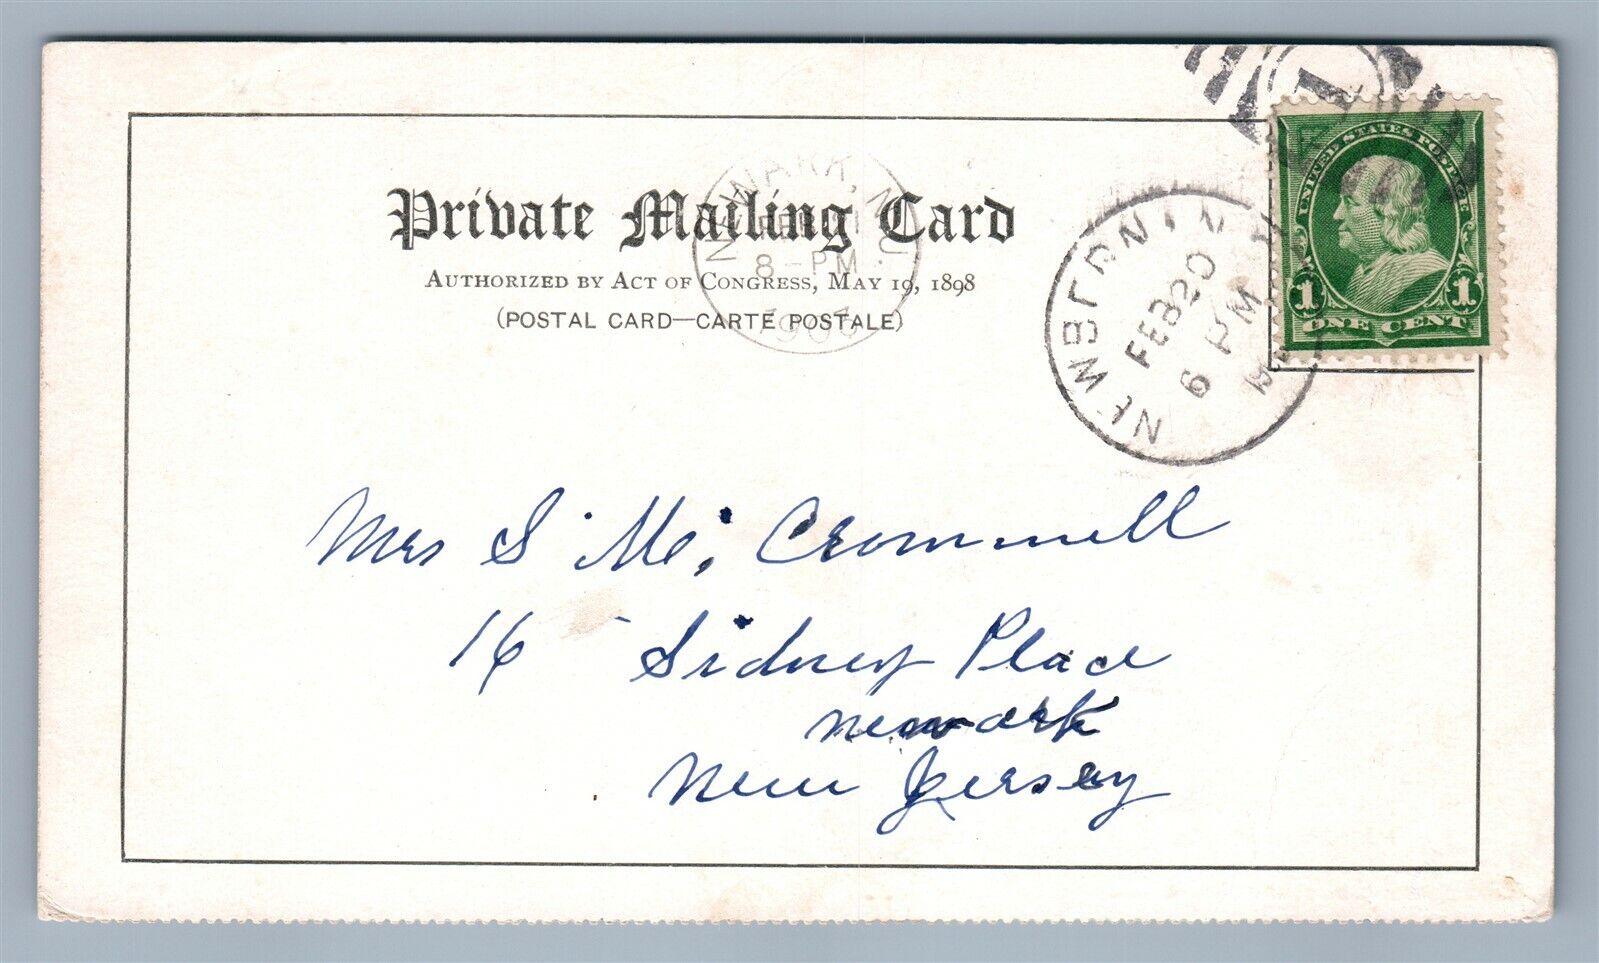 Private Mailing Card
AUTHORIZED BY ACT OF CONGRESS, MAY 19, 1898
(POSTAL CARD—CARTE POSTALE)
NEWARK, N.J.
8-PM
NEWBERN
FEB 20
6 PM
1
UNITED STATES POSTAGE
1 1
ONE CENT
Mrs S. Mc. Crommell
16 Sidney Place
Newark
New Jersey